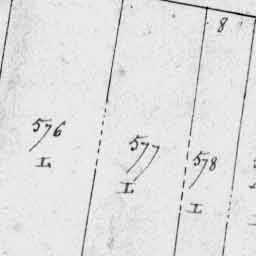 8
576
I
577
I
578
I